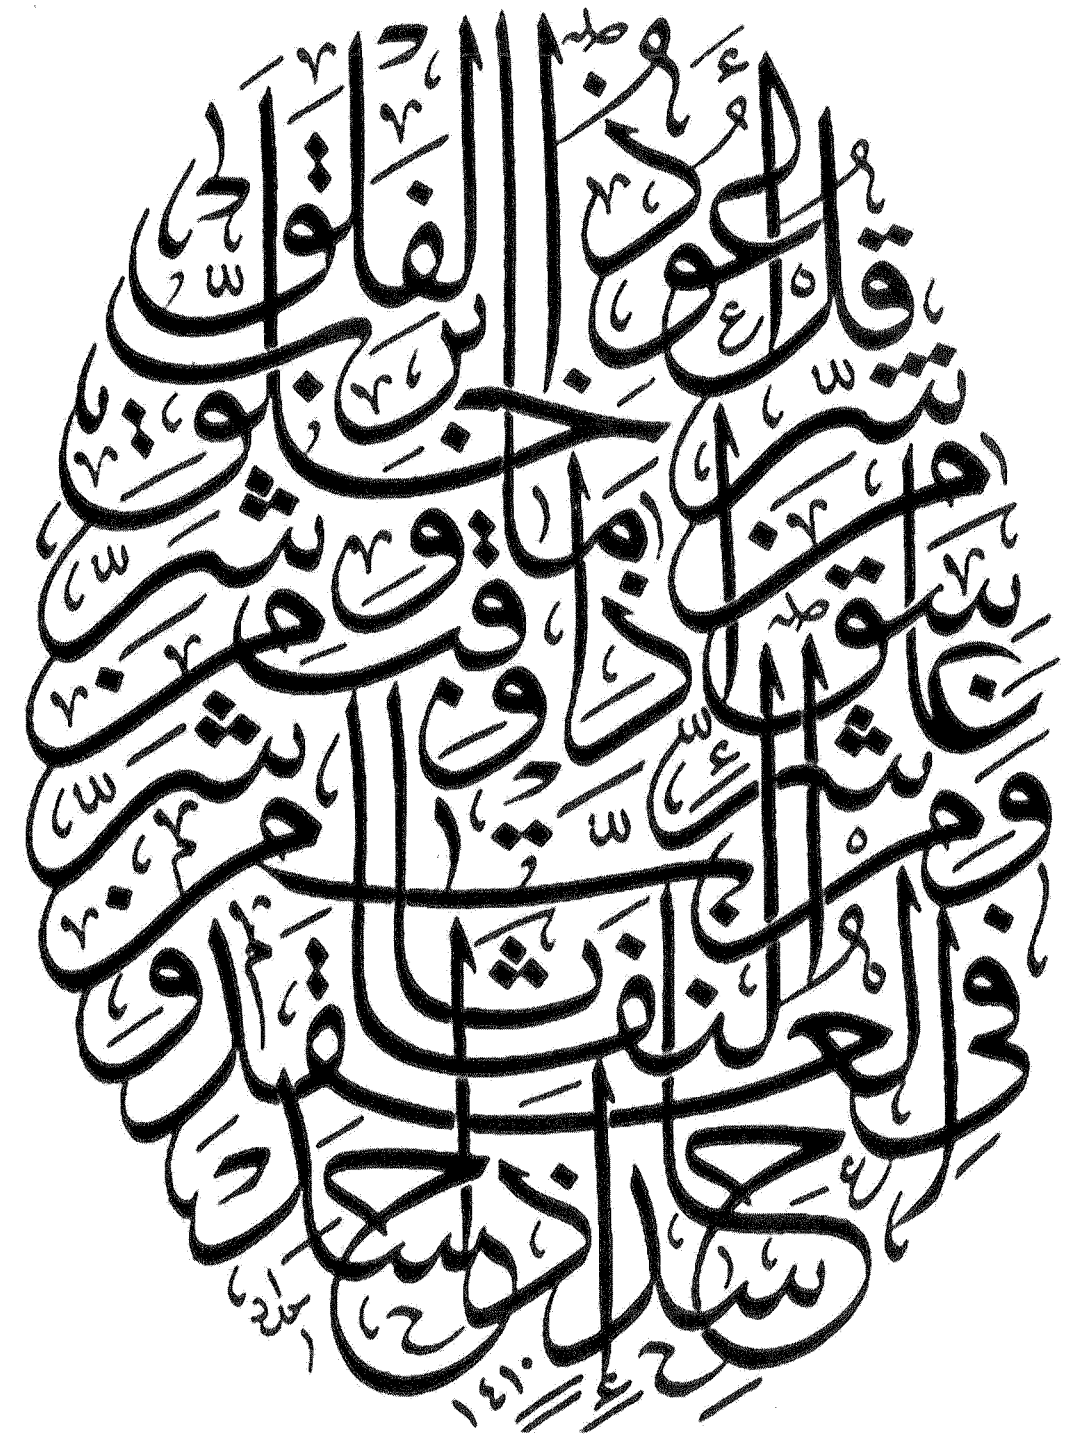 قُلْ أَعُوذُ بِرَبِّ الْفَلَقِ
مِن شَرِّ مَا خَلَقَ
وَمِن شَرِّ غَاسِقٍ إِذَا وَقَبَ
وَمِن شَرِّ النَّفَّاثَاتِ فِي الْعُقَدِ
وَمِن شَرِّ حَاسِدٍ إِذَا حَسَدَ
١٤١٠